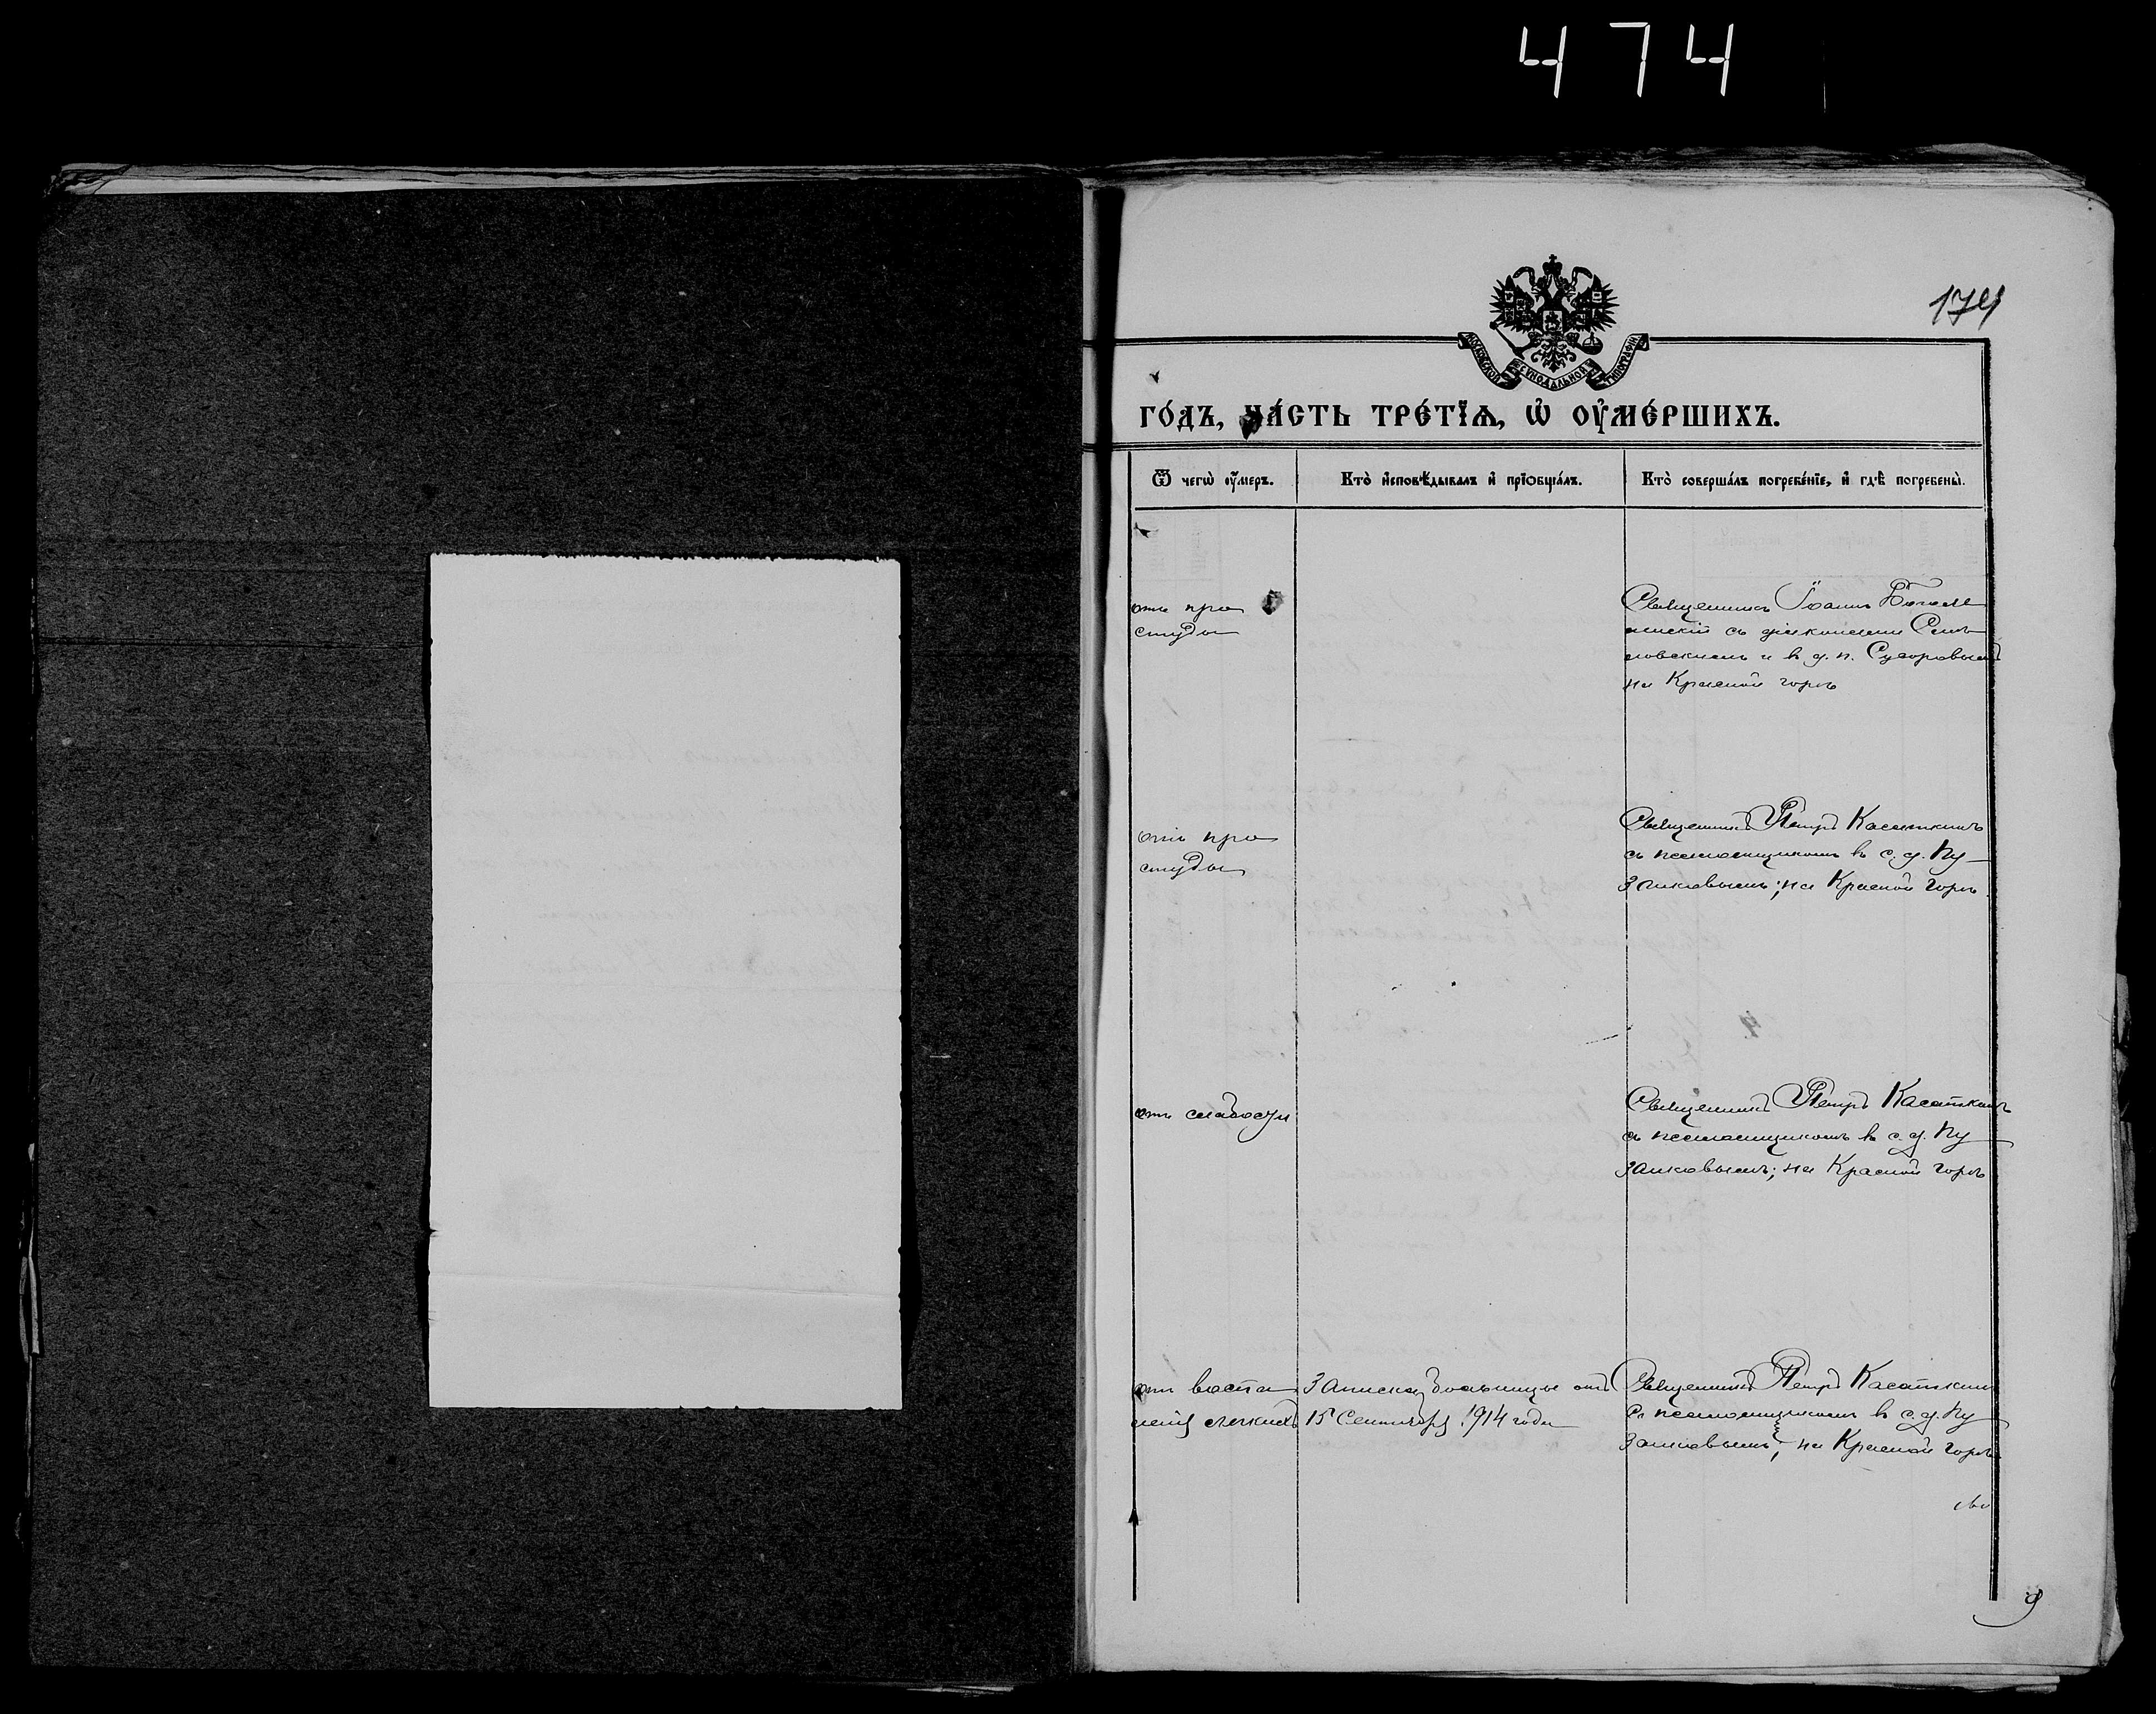 474
174
МОСКОВСКОЙ СѴНОДАЛЬНОЙ ТИПОГРАФІИ
ГО́ДЪ, ЧА́СТЬ ТРЕ́ТЇѦ, Ѡ҆ ОУ҆МЕ́РШИХЪ.
Ѿ чегѡ̀ оу҆́меръ.
Кто̀ и҆сповѣ́дывалъ и҆ прїѻбща́лъ.
Кто̀ соверша́лъ погребе́нїе, и҆ гдѣ̀ погребены̀.
отъ про
студы
Священникъ Іоаннъ Боголе
пскій съ діакономъ
и в. д. п. Суворовымъ
на Красной горѣ
отъ про
студы
Священникъ Петръ Касаткинъ
съ псаломщикомъ в с. д. Пу
заковымъ; на Красной горѣ
отъ слабости
Священникъ Петръ Касаткинъ
съ псаломщикомъ в с. д. Пу
заковымъ; на Красной горѣ
отъ воспа
ленія легкихъ
Записка больницы отъ
15 Сентября 1914 года
Священникъ Петръ Касаткин
съ псаломщикомъ в с. д. Пу
заковымъ; на Красной горѣ